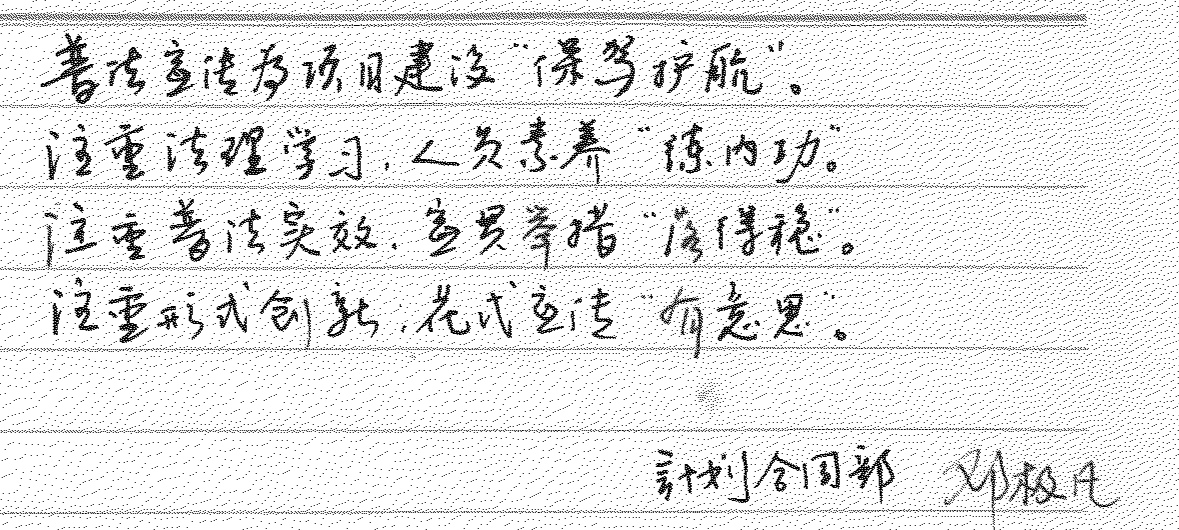 普法宣传为项目建设“保驾护航”。
注重法理学习，人员素养“练内功”。
注重普法实效，宣贯举措“落得稳”。
注重形式创新，花式宣传“有意思”。
計划合同部 邓极凡